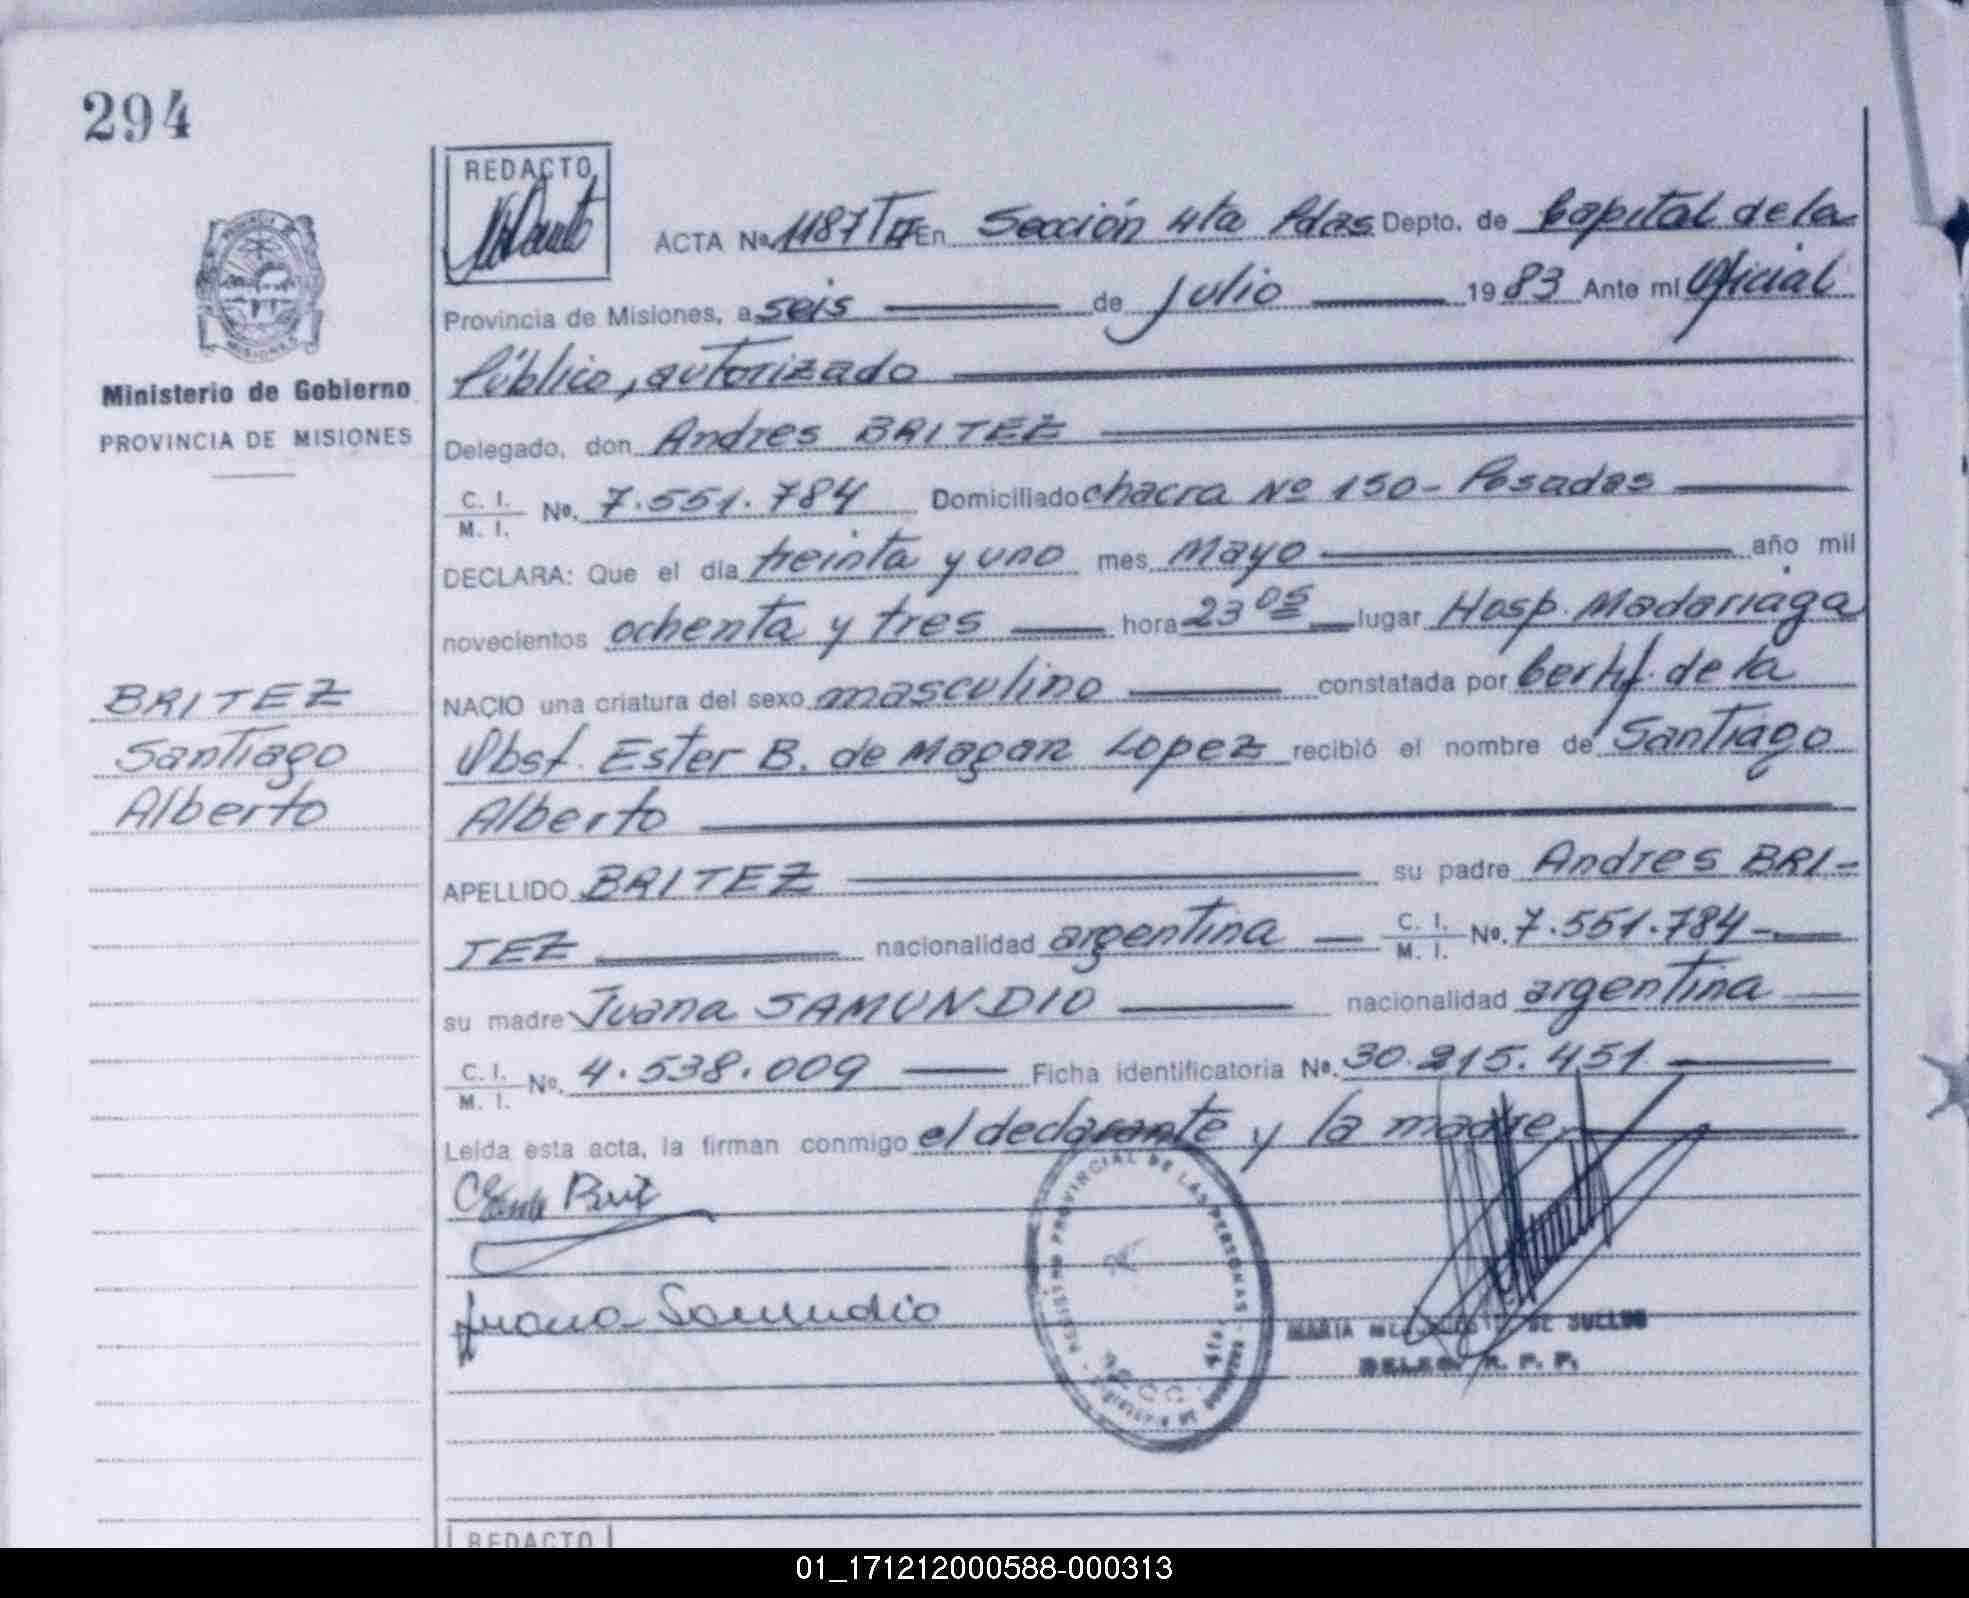 294
REDACTO
ACTA Nº 1187 TII En Sección 4ta Pdas Depto. de Capital de la
Provincia de Misiones, a seis de Julio 1983 Ante mí Oficial
Público, autorizado
Ministerio de Gobierno
PROVINCIA DE MISIONES
Delegado, don Andres BRITEZ
C. I. M. I. Nº. 7.551.784 Domiciliado chacra Nº 150 - Posadas
DECLARA: Que el día treinta y uno mes Mayo año mil
novecientos ochenta y tres hora 23 05 lugar Hosp. Madariaga
BRITEZ
Santiago
Alberto
NACIO una criatura del sexo masculino constatada por Certif. de la
Obst. Ester B. de Magan Lopez recibió el nombre de Santiago
Alberto
APELLIDO BRITEZ su padre Andres BRI-
TEZ nacionalidad argentina C. I. M. I. Nº. 7.551.784-
su madre Juana SAMUNDIO nacionalidad argentina
C. I. M. I. Nº. 4.538.009 Ficha identificatoria Nº. 30.215.451.
Leída esta acta, la firman conmigo el declarante y la madre
Juana Samudio
REGISTRO PROVINCIAL DE LAS PERSONAS
MARIA DE SUELDO
DELEG. R. P. P.
REDACTO
01_171212000588-000313